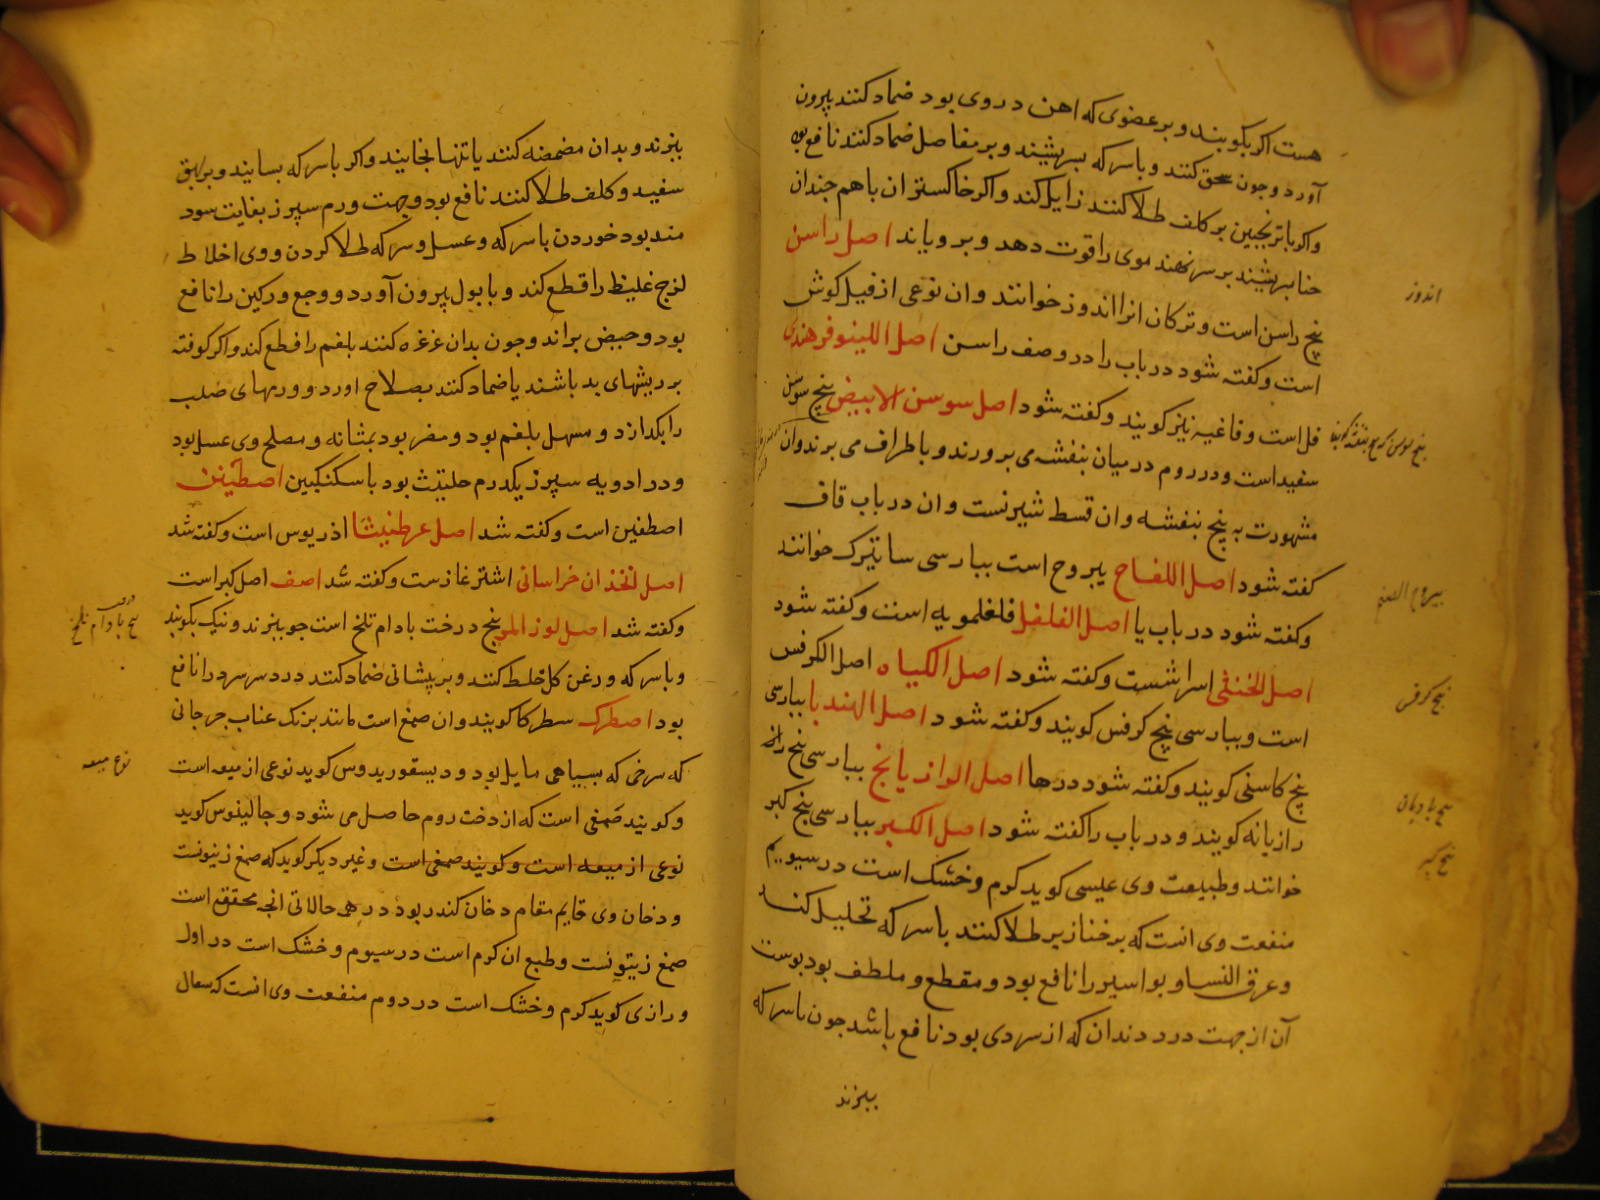 هست اکر بکوبند و بر عضوی که اهن در وی بود ضماد کنند بیرون
آورد و جون سحق کنند و با سرکه بسریشند و بر مفاصل ضماد کنند نافع بود
و اکر با ترنجبین بر کلف طلا کنند زایل کند و اکر خاکستر ان با هم جندان
حنا بسریشند بر سر نهند موی را قوت دهد و برویاند اصل راسن
بیخ راسن است و ترکان انرا اندوز خوانند و ان نوعی از فیل کوش
اندوز
است و کفته شود در باب را در وصف راسن اصل اللینوفر هندی
فل است و فاغیه نیز کویند و کفته شود اصل سوسن الابیض بیخ سوسن
سفید است و در روم در میان بنفشه می برورند و با طراف می برند وان
مشهورت به بیخ بنفشه و ان قسط شیرنست و ان در باب قاف
کفته شود اصل اللفاح یبروح است ببارسی سابترک خوانند
و کفته شود در باب یا اصل الفلفل فلفلمویه است و کفته شود
اصل الخنثی اسراشست و کفته شود اصل الکیاه اصل الکرفس
بیخ کرفس
است و ببارسی بیخ کرفس کویند و کفته شود اصل الهندبا ببارسی
بیخ کاسنی کویند و کفته شود در ها اصل الرازیانج ببارسی بیخ راز
بیخ بادیان
رازیانه کویند و در باب را کفته شود اصل الکبر ببارسی بیخ کبر
بیخ کبر
خوانند و طبیعت وی عیسی کوید کرم و خشک است در سیویم
منفعت وی انست که بر خنازیر طلا کنند با سرکه تحلیل کند
و عرق النسا و بواسیر را نافع بود و مقطع و ملطف بود بوست
آن از جهت درد دندان که از سردی بود نافع باشد جون با سرکه
ببزند
ببزند و بدان مضمضه کنند یا تنها بخایند و اکر با سرکه بسایند و بر بهق
سفید و کلف طلا کنند نافع بود و جهت ورم سپرز بغایت سود
مند بود خوردن با سرکه و عسل و سرکه طلا کردن و وی اخلاط
لزج غلیظ را قطع کند و با بول بیرون آورد و وجع ورکین را نافع
بود و حیض براند و جون بدان غرغره کنند بلغم را قطع کند و اکر کوفته
بر ریشهای بد باشند یا ضماد کنند بصلاح اورد و ورمهای صلب
را بکدازد و مسهل بلغم بود و مضر بود بمثانه و مصلح وی عسل بود
و در ادویه سپرز یکدرم حلتیت بود با سکنکبین اصطفین
اصطفین است و کفته شد اصل عرطنیثا اذریوس است و کفته شد
اصل انخذان خراسانی اشترغاز ست و کفته شد اصف اصل کبر است
و کفته شد اصل لوز المر بیخ درخت بادام تلخ است جو ببزند و نیک بکوبند
بیخ بادام تلخ
و با سرکه و رغن کل خلط کنند و بر پیشانی ضماد کنند درد سر سرد را نافع
بود اصطرک سطرکا کویند و ان صمغ است مانند بزنک عناب جرجانی
که سرخی که بسیاهی مایل بود و دیسقوریدوس کوید نوعی از میعه است
نوع میعه
و کویند صمغی است که از دخت روم حاصل می شود و جالینوس کوید
نوعی از میعه است و کویند صمغی است و غیر دیکر کوید که صمغ زیتونست
و دخان وی قایم مقام دخان کندر بود در همه حالاتی انجه محقق است
صمغ زیتونست و طبع ان کرم است در سیوم و خشک است در اول
و رازی کوید کرم و خشک است در دوم منفعت وی انست که سعال